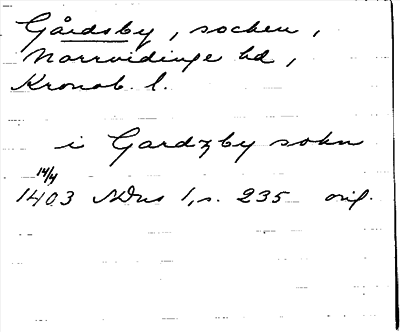 Gårdsby, socken,
Norrvidinge hd,
Kronob. l.
i Gardzby sokn
14/4
1403 SDns 1, s. 235 orig.